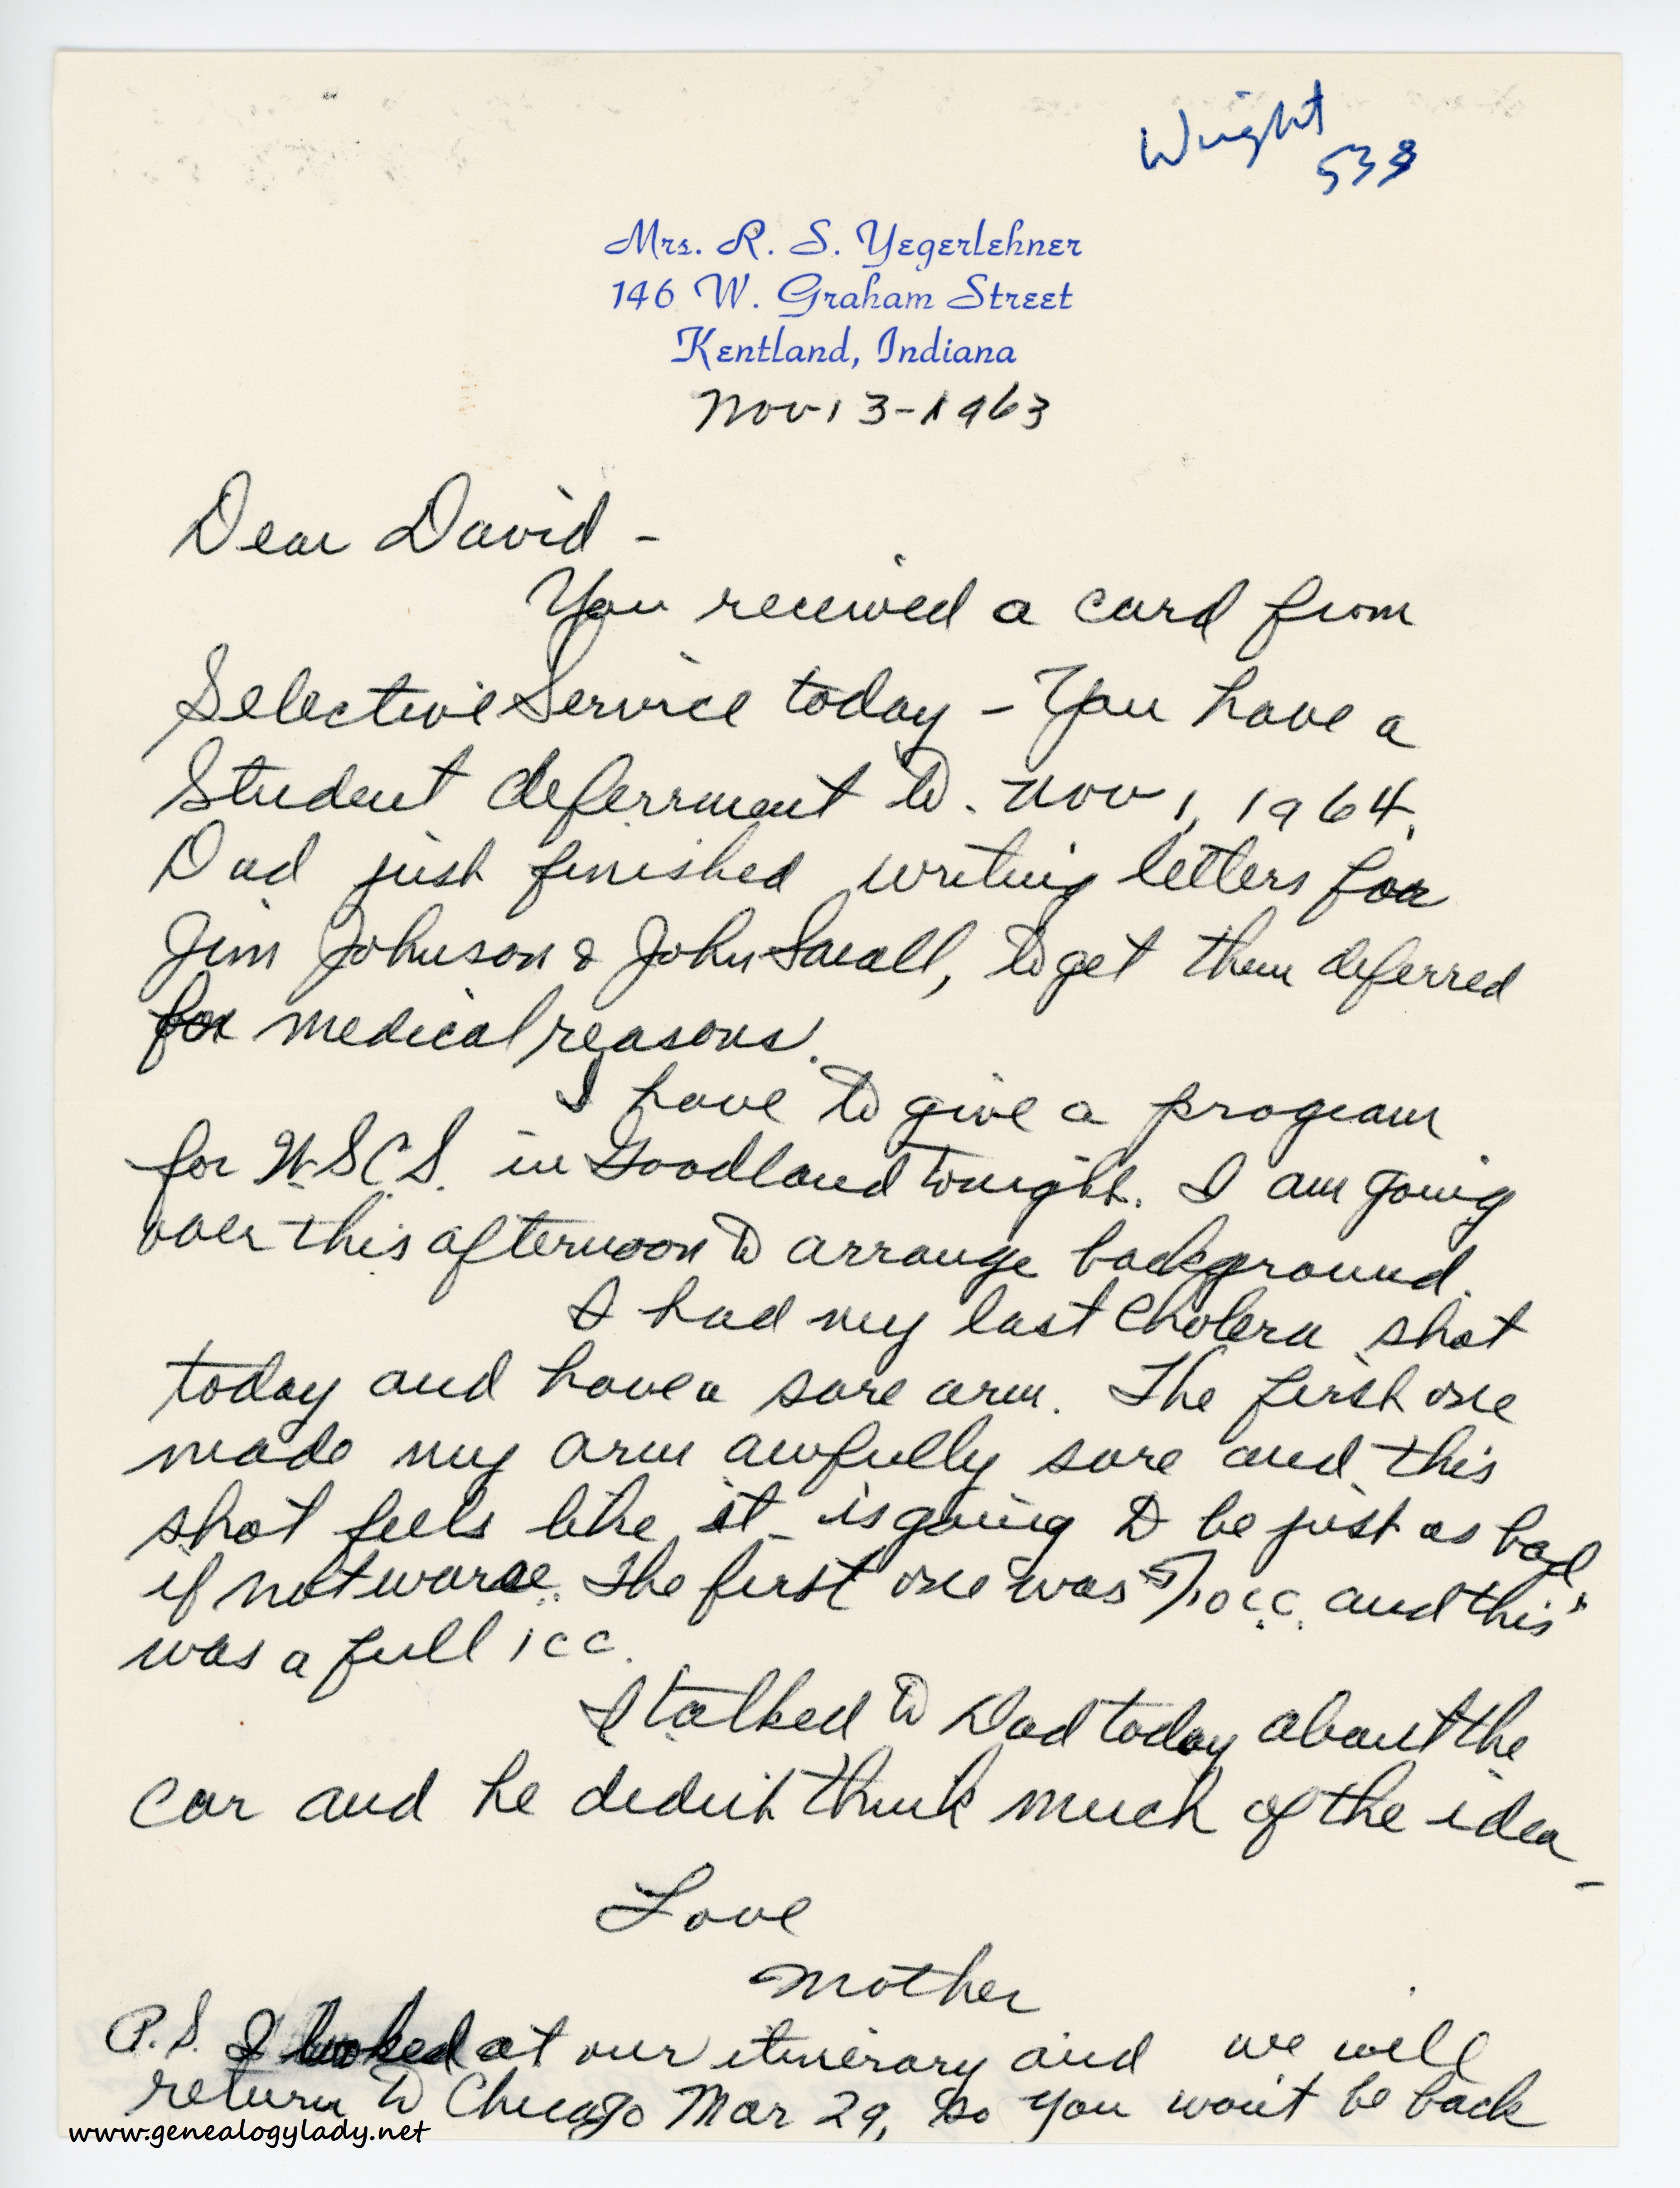 Wright
538
Mrs. R. S. Yegerlehner
146 W. Graham Street
Kentland, Indiana
Nov 13-1963
Dear David -
You received a card from
Selective Service today - You have a
Student deferrment to. Nov 1, 1964.
Dad just finished writing letters for
Jim Johnson & John, to get them deferred
for medical reasons.
I have to give a program
for W.S.C.S. in Goodland tonight. I am going
over this afternoon to arrange background.
I had my last Cholera shot
today and have a sore arm. The first one
made my arm awfully sore and this
shot feels like it is going to be just as bad
if not worse. The first one was 5/10 c.c. and this
was a full 1 cc.
I talked to Dad today about the
car and he didn't think much of the idea -
Love
Mother
P.S. I looked at our itinerary and we will
return to Chicago Mar 29, so you won't be back
www.genealogylady.net